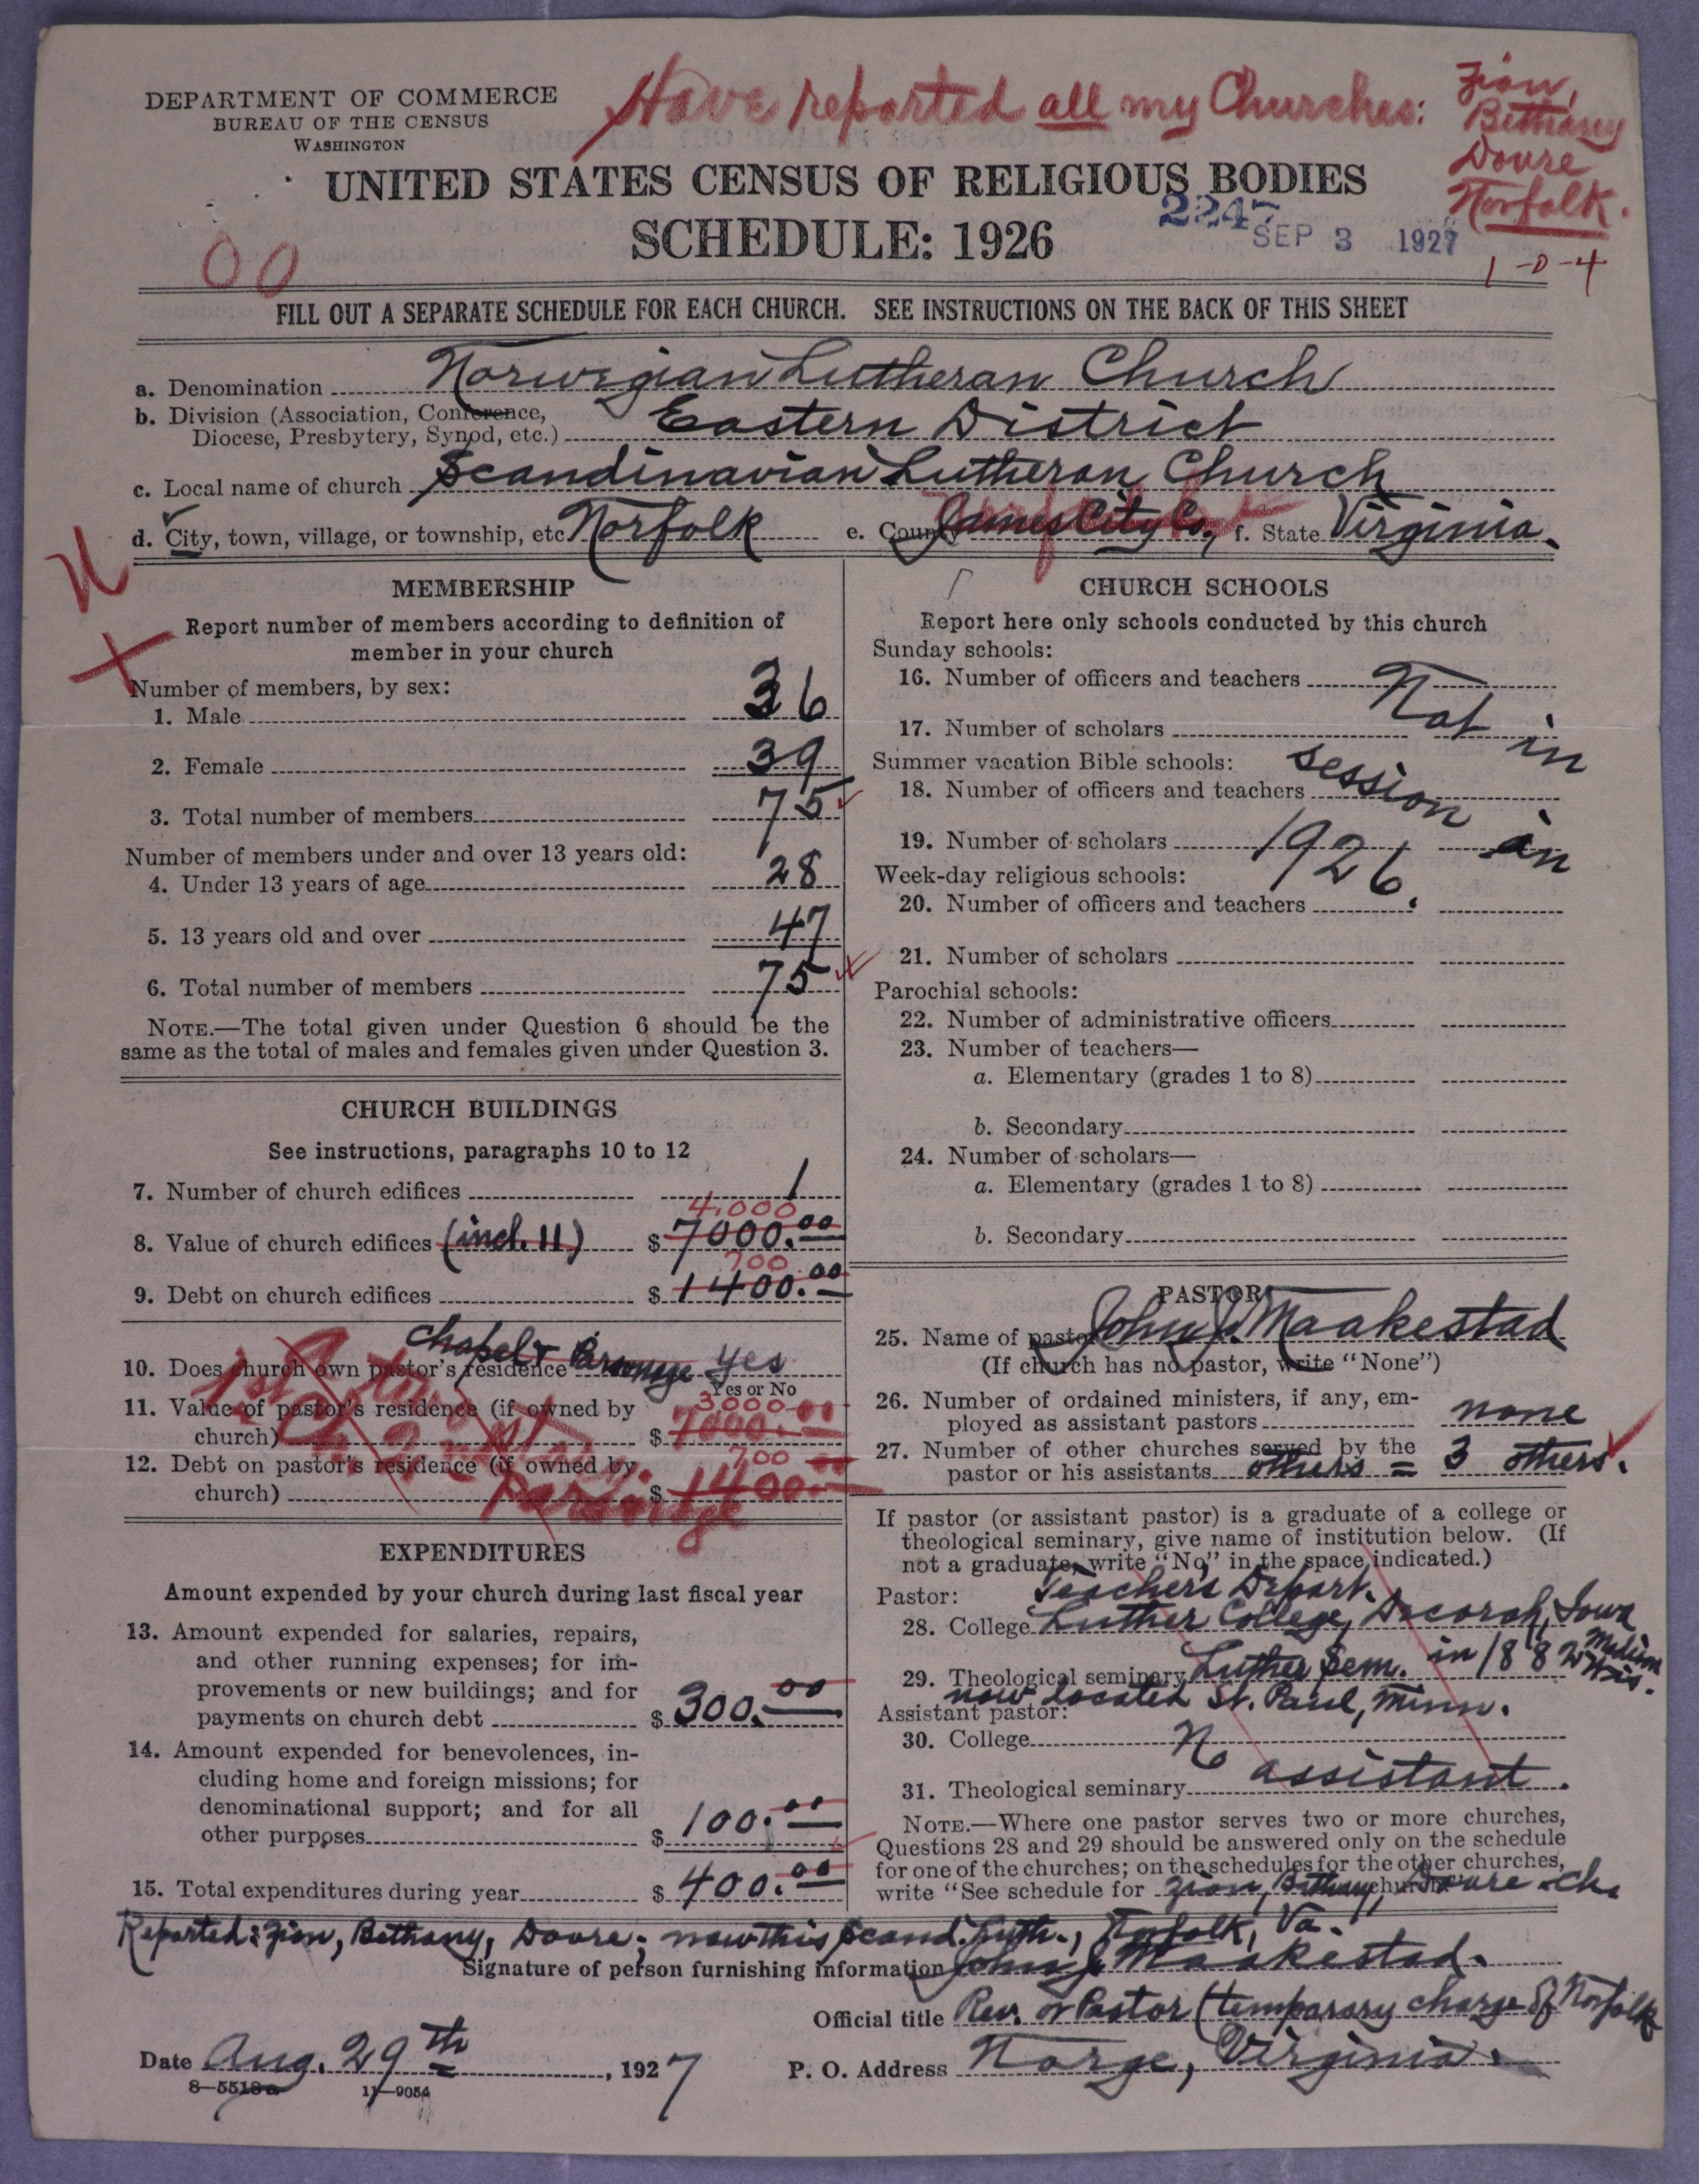 DEPARTMENT OF COMMERCE
BUREAU OF THE CENSUS
WASHINGTON
Have reported all my Churches:
Zion,
Bethany
Dovre
Norfolk.
UNITED STATES CENSUS OF RELIGIOUS BODIES
SCHEDULE: 1926
2247
SEP 3 1927
1-0-4
00
FILL OUT A SEPARATE SCHEDULE FOR EACH CHURCH. SEE INSTRUCTIONS ON THE BACK OF THIS SHEET
a. Denomination Norwegian Lutheran Church
b. Division (Association, Conference,
Diocese, Presbytery, Synod, etc.) Eastern District
c. Local name of church Scandinavian Lutheran Church
d. City, town, village, or township, etc. Norfolk e. County James City Co., f. State Virginia.
MEMBERSHIP
Report number of members according to definition of
member in your church
Number of members, by sex:
1. Male 36
2. Female 39
3. Total number of members 75
Number of members under and over 13 years old:
4. Under 13 years of age 28
5. 13 years old and over 47
6. Total number of members 75
NOTE.—The total given under Question 6 should be the
same as the total of males and females given under Question 3.
CHURCH BUILDINGS
See instructions, paragraphs 10 to 12
7. Number of church edifices 1
4,000
8. Value of church edifices (incl. 11) $ 7000.00
700
9. Debt on church edifices $ 1400.00
Chapel & Parsonage yes
10. Does church own pastor's residence
Yes or No
3,000
11. Value of pastor's residence (if owned by
church) $ 7000.00
700
12. Debt on pastor's residence (if owned by
church) $ 1400.00
Parsonage
EXPENDITURES
Amount expended by your church during last fiscal year
13. Amount expended for salaries, repairs,
and other running expenses; for im-
provements or new buildings; and for
payments on church debt $ 300.00
14. Amount expended for benevolences, in-
cluding home and foreign missions; for
denominational support; and for all
other purposes $ 100.00
15. Total expenditures during year $ 400.00
CHURCH SCHOOLS
Report here only schools conducted by this church
Sunday schools:
16. Number of officers and teachers Not in
17. Number of scholars
Summer vacation Bible schools: session in
18. Number of officers and teachers
19. Number of scholars 1926.
Week-day religious schools:
20. Number of officers and teachers
21. Number of scholars
Parochial schools:
22. Number of administrative officers
23. Number of teachers—
a. Elementary (grades 1 to 8)
b. Secondary
24. Number of scholars—
a. Elementary (grades 1 to 8)
b. Secondary
PASTOR
25. Name of pastor John J. Maakestad
(If church has no pastor, write "None")
26. Number of ordained ministers, if any, em-
ployed as assistant pastors none
27. Number of other churches served by the
pastor or his assistants others = 3 others.
If pastor (or assistant pastor) is a graduate of a college or
theological seminary, give name of institution below. (If
not a graduate, write "No" in the space indicated.)
Pastor: Teachers Depart.
28. College Luther College, Decorah, Iowa
29. Theological seminary Luther Sem. in 1882 Wis.
now located St. Paul, Minn.
Assistant pastor:
30. College No
31. Theological seminary assistant.
NOTE.—Where one pastor serves two or more churches,
Questions 28 and 29 should be answered only on the schedule
for one of the churches; on the schedules for the other churches,
write "See schedule for Zion, Bethany, Dovre church." ch.
Reported: Zion, Bethany, Dovre; now this Scand. Luth., Norfolk, Va.
Signature of person furnishing information John J. Maakestad.
Official title Rev. or Pastor (temporary charge of Norfolk
Date Aug. 29th, 1927 P. O. Address Norge, Virginia.
8—5518a 11—9054